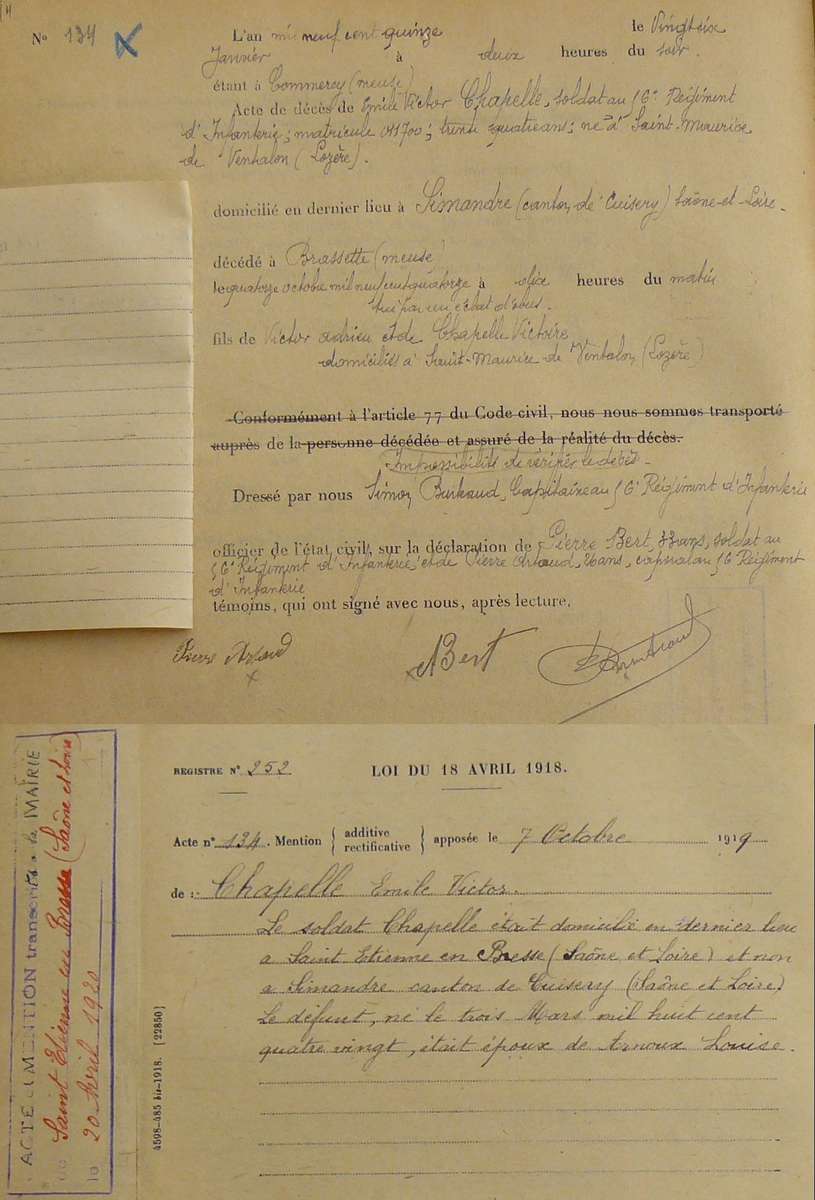 N° 134
L'an mil neuf cent quinze le Vingt six
Janvier à deux heures du soir.
étant à Commercy (meuse)
Acte de décès de Emile Victor Chapelle, soldat au 56e Régiment
d'Infanterie; matricule 011700; trente quatre ans; né à Saint-Maurice
de Ventalon (Lozère).
domicilié en dernier lieu à Simandre (canton de Cuisery) Saône-et-Loire.
décédé à Brassette (meuse)
le quatorze octobre mil neuf cent quatorze à dix heures du matin
tué par un éclat d'obus.
fils de Victor Adrien et de Chapelle Victoire
domiciliés à Saint-Maurice de Ventalon (Lozère)
Conformément à l'article 77 du Code civil, nous nous sommes transporté
auprès de la personne décédée et assuré de la réalité du décès.
Impossibilité de vérifier le décès.
Dressé par nous Simon, Capitaine au 56e Régiment d'Infanterie
officier de l'état civil, sur la déclaration de Pierre Bert, ans, soldat au
56e Régiment d'Infanterie et de Pierre Artaud, 26 ans, caporal au 56e Régiment
d'Infanterie
témoins, qui ont signé avec nous, après lecture.
Pierre Artaud Bert
ACTE et MENTION transcrits à la MAIRIE
de Saint Etienne en Bresse (Saône et Loire)
le 20 Avril 1920
REGISTRE N° 252 LOI DU 18 AVRIL 1918.
Acte n° 134. Mention { additive rectificative } apposée le 7 Octobre 1919
de : Chapelle Emile Victor.
Le soldat Chapelle était domicilié en dernier lieu
à Saint Etienne en Bresse (Saône et Loire) et non
à Simandre canton de Cuisery (Saône et Loire)
Le défunt, né le trois Mars mil huit cent
quatre vingt, était époux de Arnoux Louise.
4598-485 bis-1918. [22850]